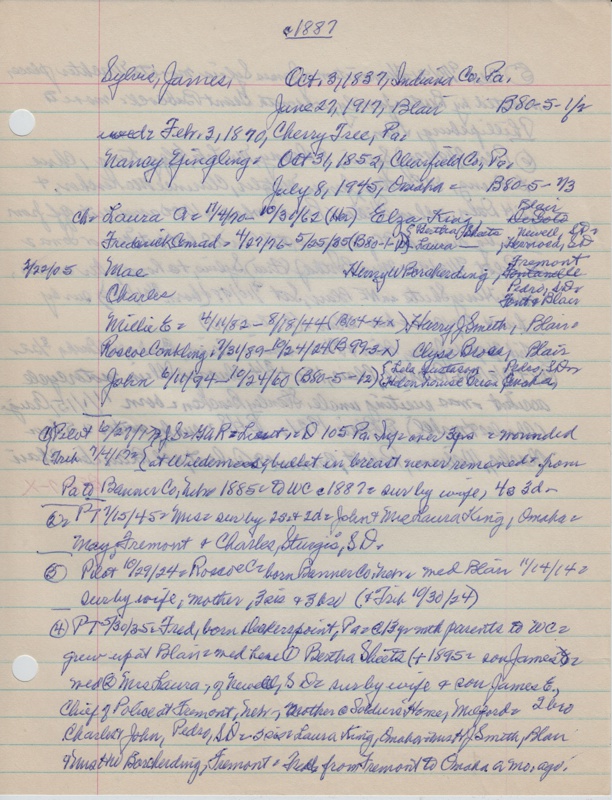 c1887
Sylvis, James, Oct. 3, 1837, Indiana Co, Pa.
June 27, 1917, Blair B80-5-1/2
wed= Feb. 3, 1870, Cherry Tree, Pa=
Nancy Yingling = Oct 31, 1852, Clearfield Co, Pa=
July 8, 1945, Omaha = B80-5-7/3
Ch= Laura A = 11/4/70 - 10/30/62 (Ha) Elza King, Blair DeSoto
Frederick Conrad = 4/27/76 - 5/25/35 (B80-1-) { Bertha Sheets Laura — Newell, S.D.=
2/22/05 Mae Henry W Borcherding, Fremont Fontanelle
Charles Pedro, S.D= Font & Blair
Willie E = 4/11/82 - 8/18/44 (B104-4-x) Harry J Smith, Blair=
Roscoe Conkling, 7/31/89 - 10/24/24 (B993-x) Clysa Bross, Blair
John 6/11/94 - 10/24/60 (B80-5-12) { Lola Gustason - Pedro, S.D= Helen Louise Omaha,
① Pilot 6/27/17 = J.S = GAR = Lieut, = D 105 Pa Inf = over 3 yrs = wounded
{ Trib 7/4/17 = { at Wilderness by bullet in breast never removed = from
Pa to Banner Co, Nebr 1885 = to WC c1887 = sur by wife, 4s 3d=
②= PT 7/15/45 = Mrs = sur by 2s & 2d = John & Mrs Laura King, Omaha=
May, Fremont & Charles, Sturgis, S.D.
③ Pilot 10/29/24 = Roscoe C = born Banner Co. Nebr = med Blair 11/14/14 =
sur by wife, mother, 3 sis & 3 bro (& Trib 10/30/24)
④ PT 5/30/35 = Fred, born Deckerspoint, Pa = @ 13 yr with parents to WC =
grew up at Blair = med here ① Bertha Sheets (+ 1895 = son James E =
med ② Mrs Laura, of Newell, S D = sur by wife & son James E,
Chief of Police at Fremont, Nebr, mother @ Soldiers Home, Milford = 2 bro
Charles & John, Pedro, S.D = 3 sis = Laura King, Omaha = Mrs H J Smith, Blair
& Mrs HW Borcherding, Fremont = Fred from Fremont to Omaha a mo. ago.